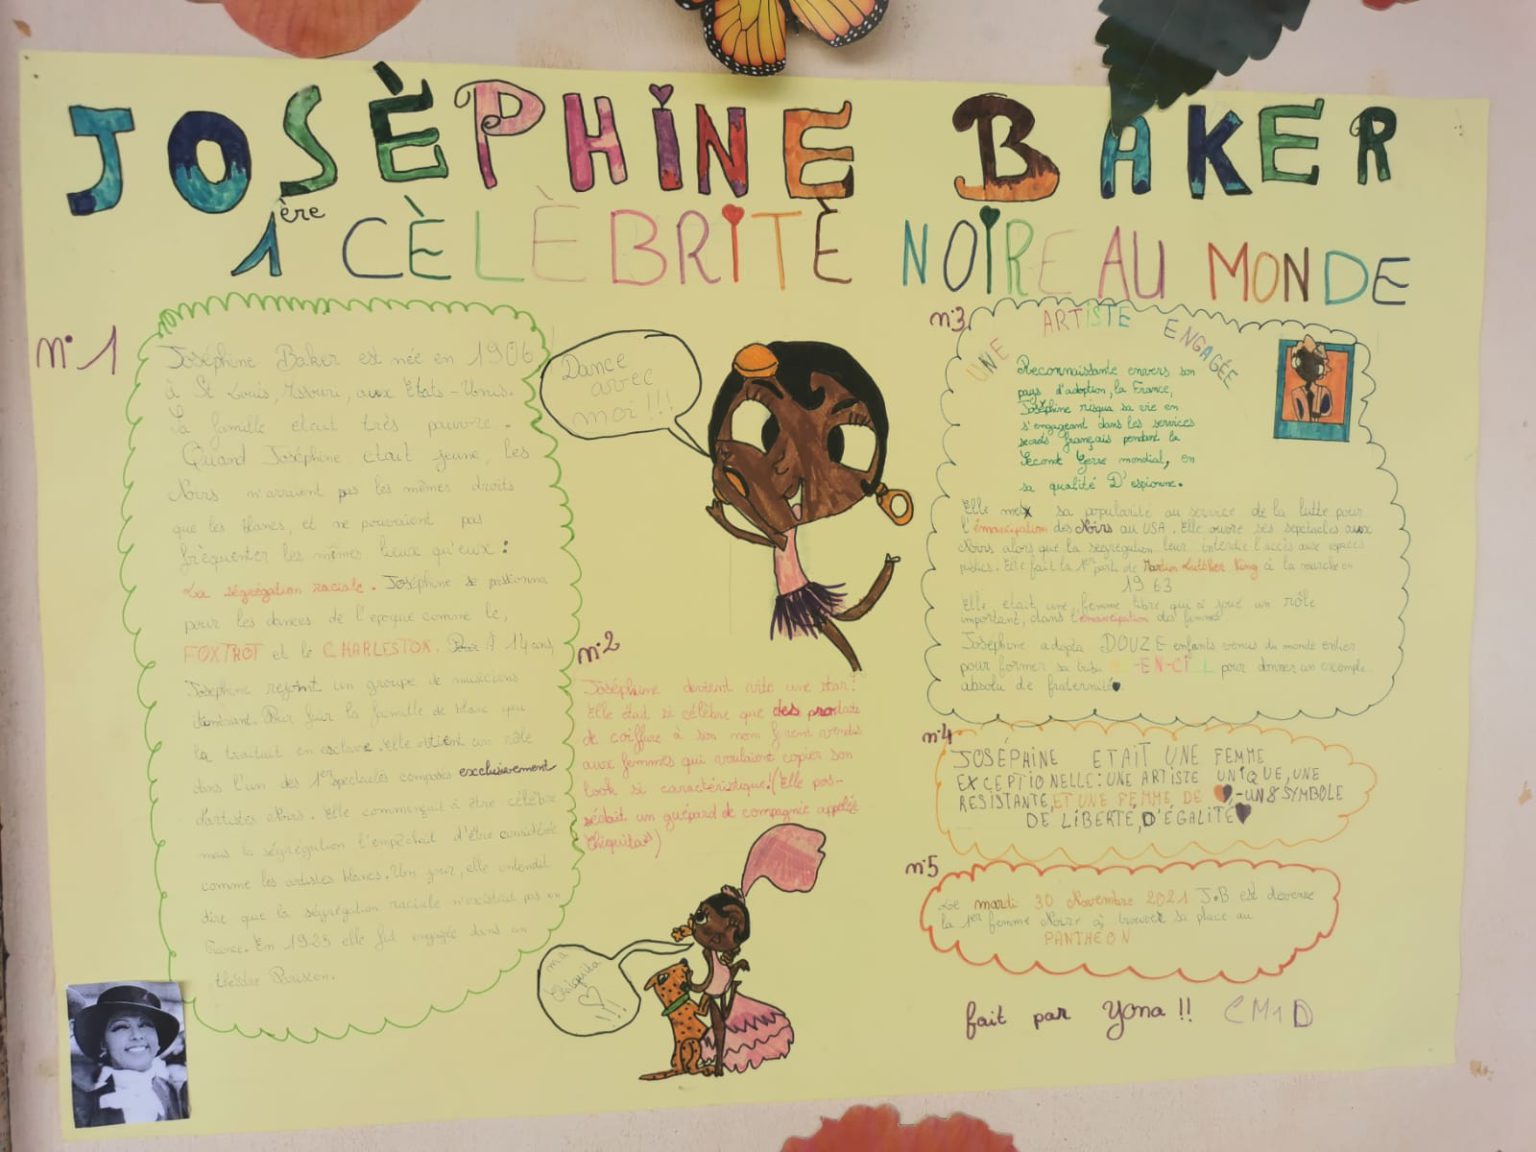 JOSÈPHINE BAKER
1ère CÈLÈBRITÈ NOIRE AU MONDE
n°1
Joséphine Baker est née en 1906
à St Louis, aux Etats-Unis.
La famille était très pauvre.
Quand Joséphine était jeune, les
Noirs n'avaient pas les mêmes droits
que les blancs, et ne pouvaient pas
fréquenter les mêmes lieux qu'eux :
La ségrégation raciale. Joséphine se passionna
pour les dances de l'epoque comme le,
FOXTROT et le CHARLESTON. À 14 ans
Joséphine rejoint un groupe de musiciens
Pour fuir la famille de blanc qui
la traitait en esclave. elle obtient un rôle
dans l'un des 1er spectacles composés exclusivement
d'artistes Noirs. Elle commençait à être célèbre
mais la ségrégation l'empêchait d'être considérée
comme les artistes blancs. Un jour, elle entendit
dire que la ségrégation raciale n'existait pas en
France. En 1925 elle fut engagée dans un
théâtre
Dance
avec
moi !!!
n°2
Joséphine devient vite une star!
Elle était si célèbre que des produits
de coiffure à son nom furent vendus
aux femmes qui voulaient copier son
look si caractéristique! (Elle pos-
sédait un guépard de compagnie appelé
Chiquita)
ma
Chiquita
!!!
n°3
UNE ARTISTE ENGAGÉE
Reconnaissante envers son
pays d'adoption, la France,
Joséphine risqua sa vie en
s'engageant dans les services
secrets français pendant la
Second mondial, en
sa qualité D'espionne.
Elle met sa popularité au service de la lutte pour
l'émancipation des Noirs au USA. Elle ouvre ses
Noirs alors que la ségrégation leur interdit l'accès aux espaces
Elle fait la 1er partie de King à la marche en
1963
Elle etait une femme libre, qui a joué un rôle
important, dans l'émancipation des femmes
Joséphine adopta DOUZE enfants venus du monde entier
pour former sa tribu -EN-CIEL pour donner un exemple
absolu de fraternité
n°4
JOSÉPHINE ETAIT UNE FEMME
EXCEPTIONELLE: UNE ARTISTE UNIQUE, UNE
RESISTANTE, ET UNE FEMME DE SYMBOLE
DE LIBERTE, D'ÉGALITÉ
n°5
Le mardi 30 Novembre 2021 J.B est devenue
la 1er femme Noire à trouver sa place au
PANTHEON
fait par Yona !! CM1D